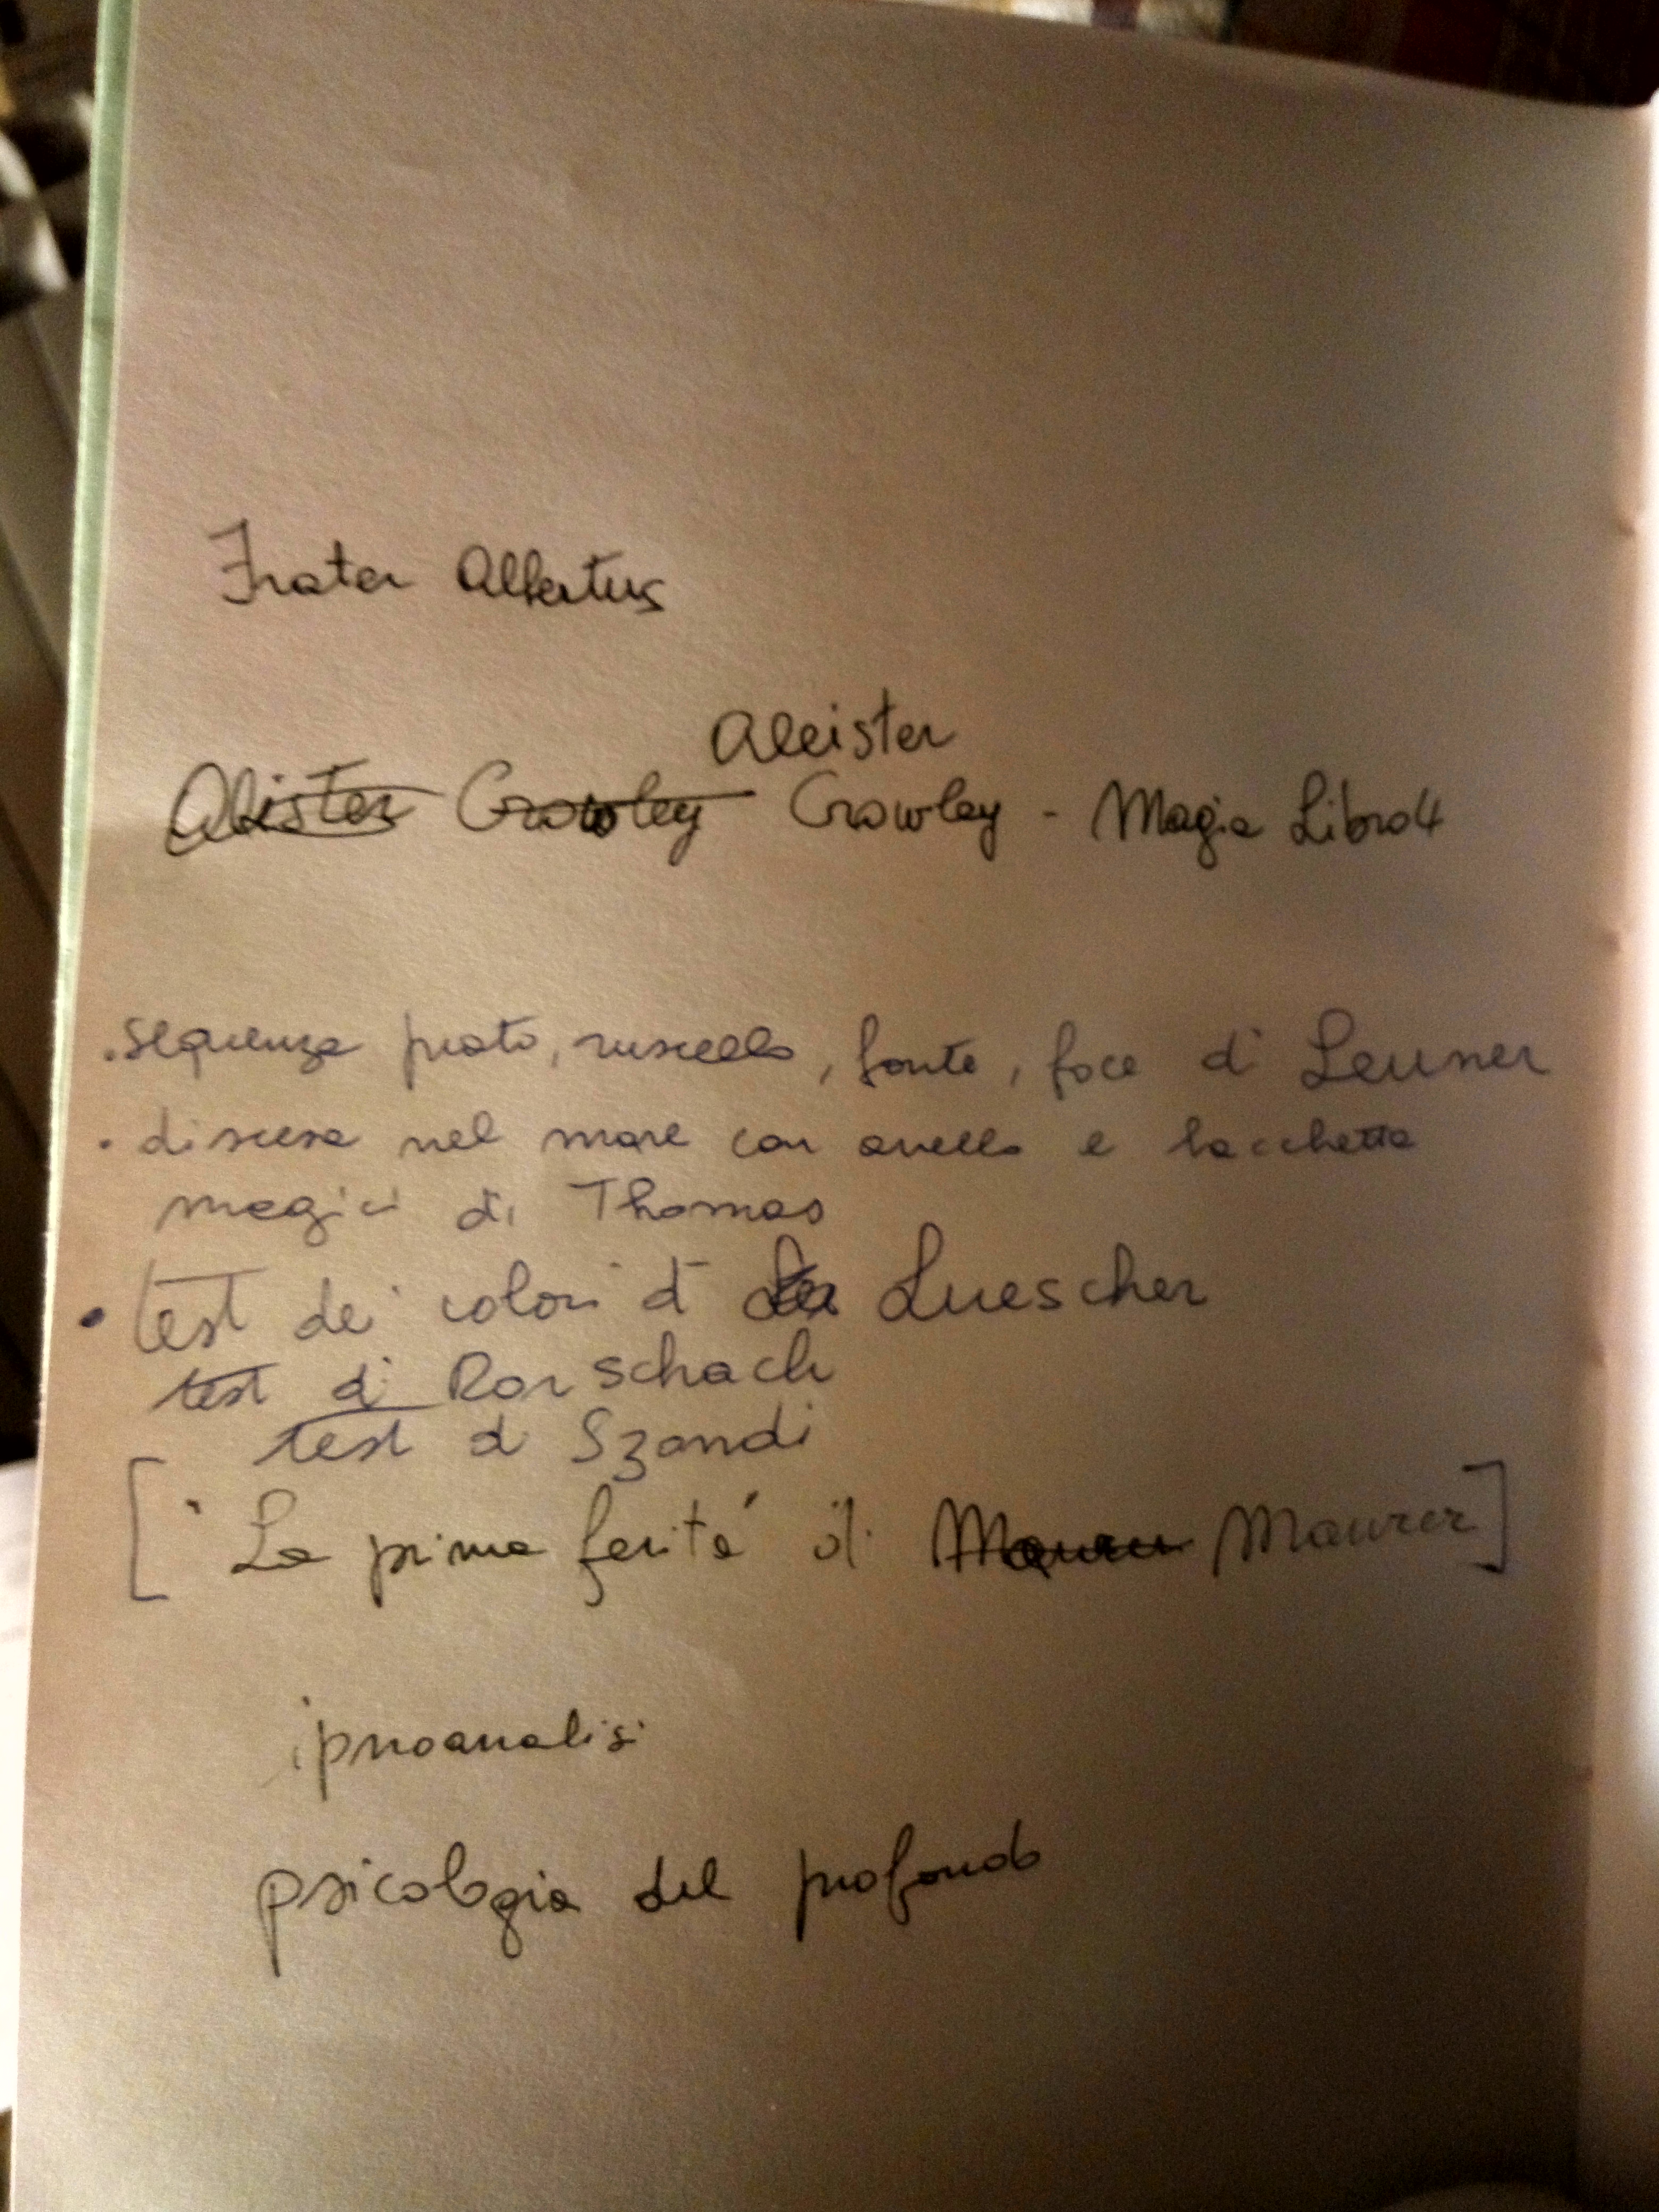 Frater Albertus
Aleister
Alister Crowley Crowley - Magia Libro 4
. sequenza prato, ruscello, fonte, foce di Leuner
. discesa nel mare con anello e bacchetta
magici di Thomas
. test dei colori di Luescher
test di Rorschach
test di Szondi
["La prima ferita" di Mauru Maurer]
ipnoanalisi
psicologia del profondo